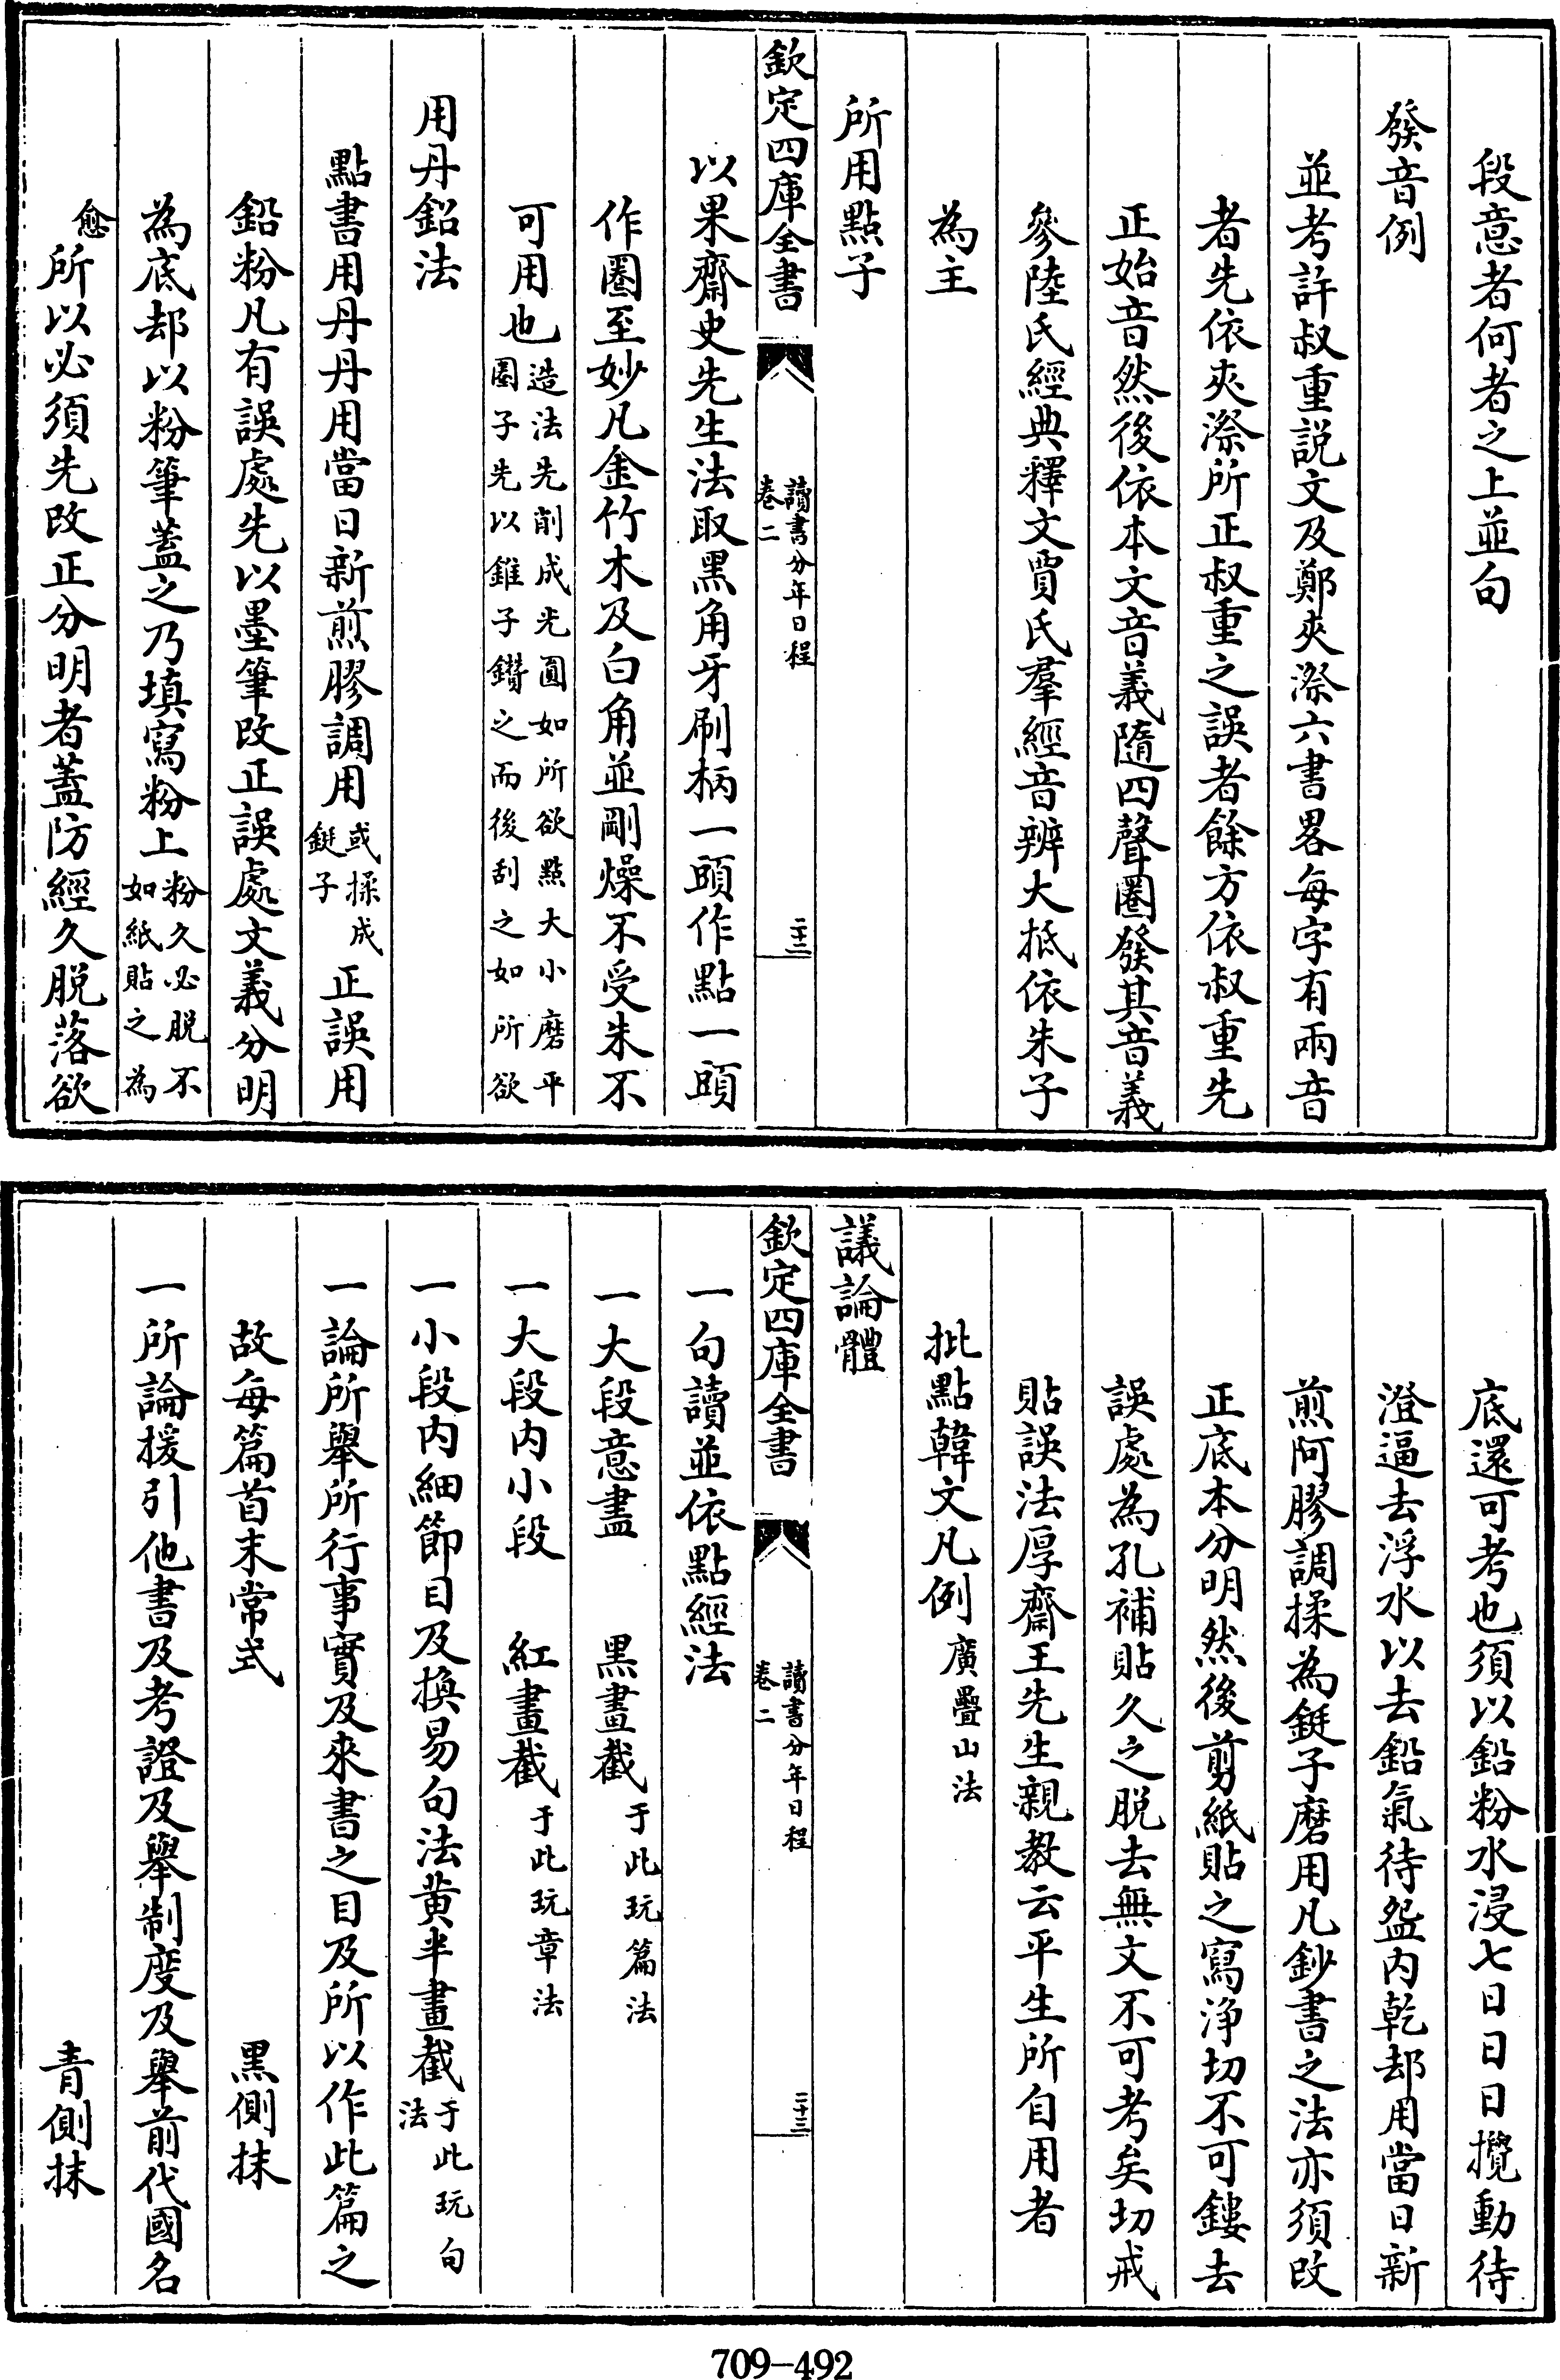 段意者何者之上並句
發音例
並考許叔重説文及鄭夾漈六書畧每字有兩音
者先依夾漈所正叔重之誤者餘方依叔重先
正始音然後依本文音義隨四聲圈發其音義
參陸氏經典釋文賈氏羣經音辨大抵依朱子
為主
所用點子
欽定四庫全書 讀書分年日程 卷二 二十二
以果齋史先生法取黑角牙刷柄一頭作點一頭
作圈至妙凡金竹木及白角並剛燥不受朱不
可用也造法先削成光圓如所欲點大小磨平圈子先以錐子鑽之而後刮之如所欲
用丹鉛法
點書用丹丹用當日新煎膠調用或揉成鋌子正誤用
鉛粉凡有誤處先以墨筆改正誤處文義分明
為底却以粉筆蓋之乃填寫粉上粉久必脱不如紙貼之為
愈所以必須先改正分明者蓋防經久脱落欲
底還可考也須以鉛粉水浸七日日日攪動待
澄逼去浮水以去鉛氣待盌内乾却用當日新
煎阿膠調揉為鋌子磨用凡鈔書之法亦須改
正底本分明然後剪紙貼之寫浄切不可鏤去
誤處為孔補貼久之脱去無文不可考矣切戒
貼誤法厚齋王先生親教云平生所自用者
批點韓文凡例廣疊山法
議論體
欽定四庫全書 讀書分年日程 卷二 二十三
一句讀並依點經法
一大段意盡 黑畫截于此玩篇法
一大段内小段 紅畫截于此玩章法
一小段内細節目及換易句法黄半畫截于此玩句法
一論所舉所行事實及來書之目及所以作此篇之
故每篇首末常式 黑側抹
一所論援引他書及考證及舉制度及舉前代國名
青側抹
709-492